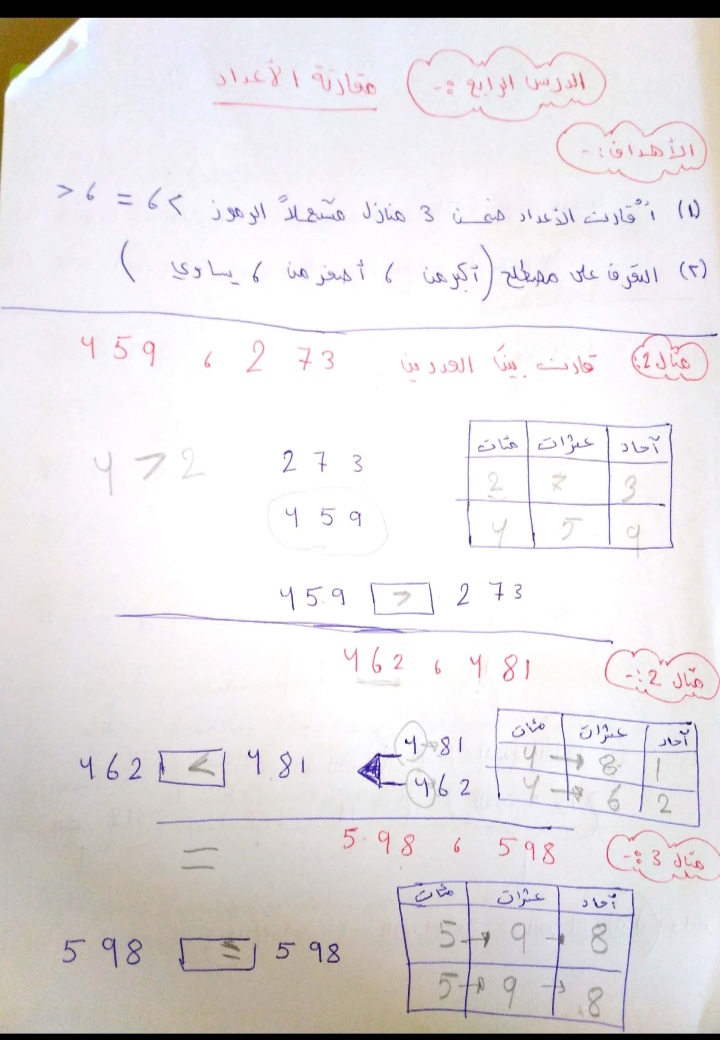 الدرس الرابع :- مقارنة الأعداد
الأهداف :-
(1) أقارن الأعداد ضمن 3 منازل مستعملاً الرموز > ، = ، <
(٢) التعرف على مصطلح (أكبر من ، أصغر من ، يساوي )
مثال 2: قارن بين العددين 273 ، 459
آحاد عشرات مئات
2 7 3
4 5 9
273
459
4 > 2
459 > 273
مثال 2 :- 462 ، 481
آحاد عشرات مئات
4 → 8 1
4 → 6 2
481
462
462 < 481
مثال 3 :- 598 ، 598
=
آحاد عشرات مئات
5 → 9 → 8
5 → 9 → 8
598 = 598